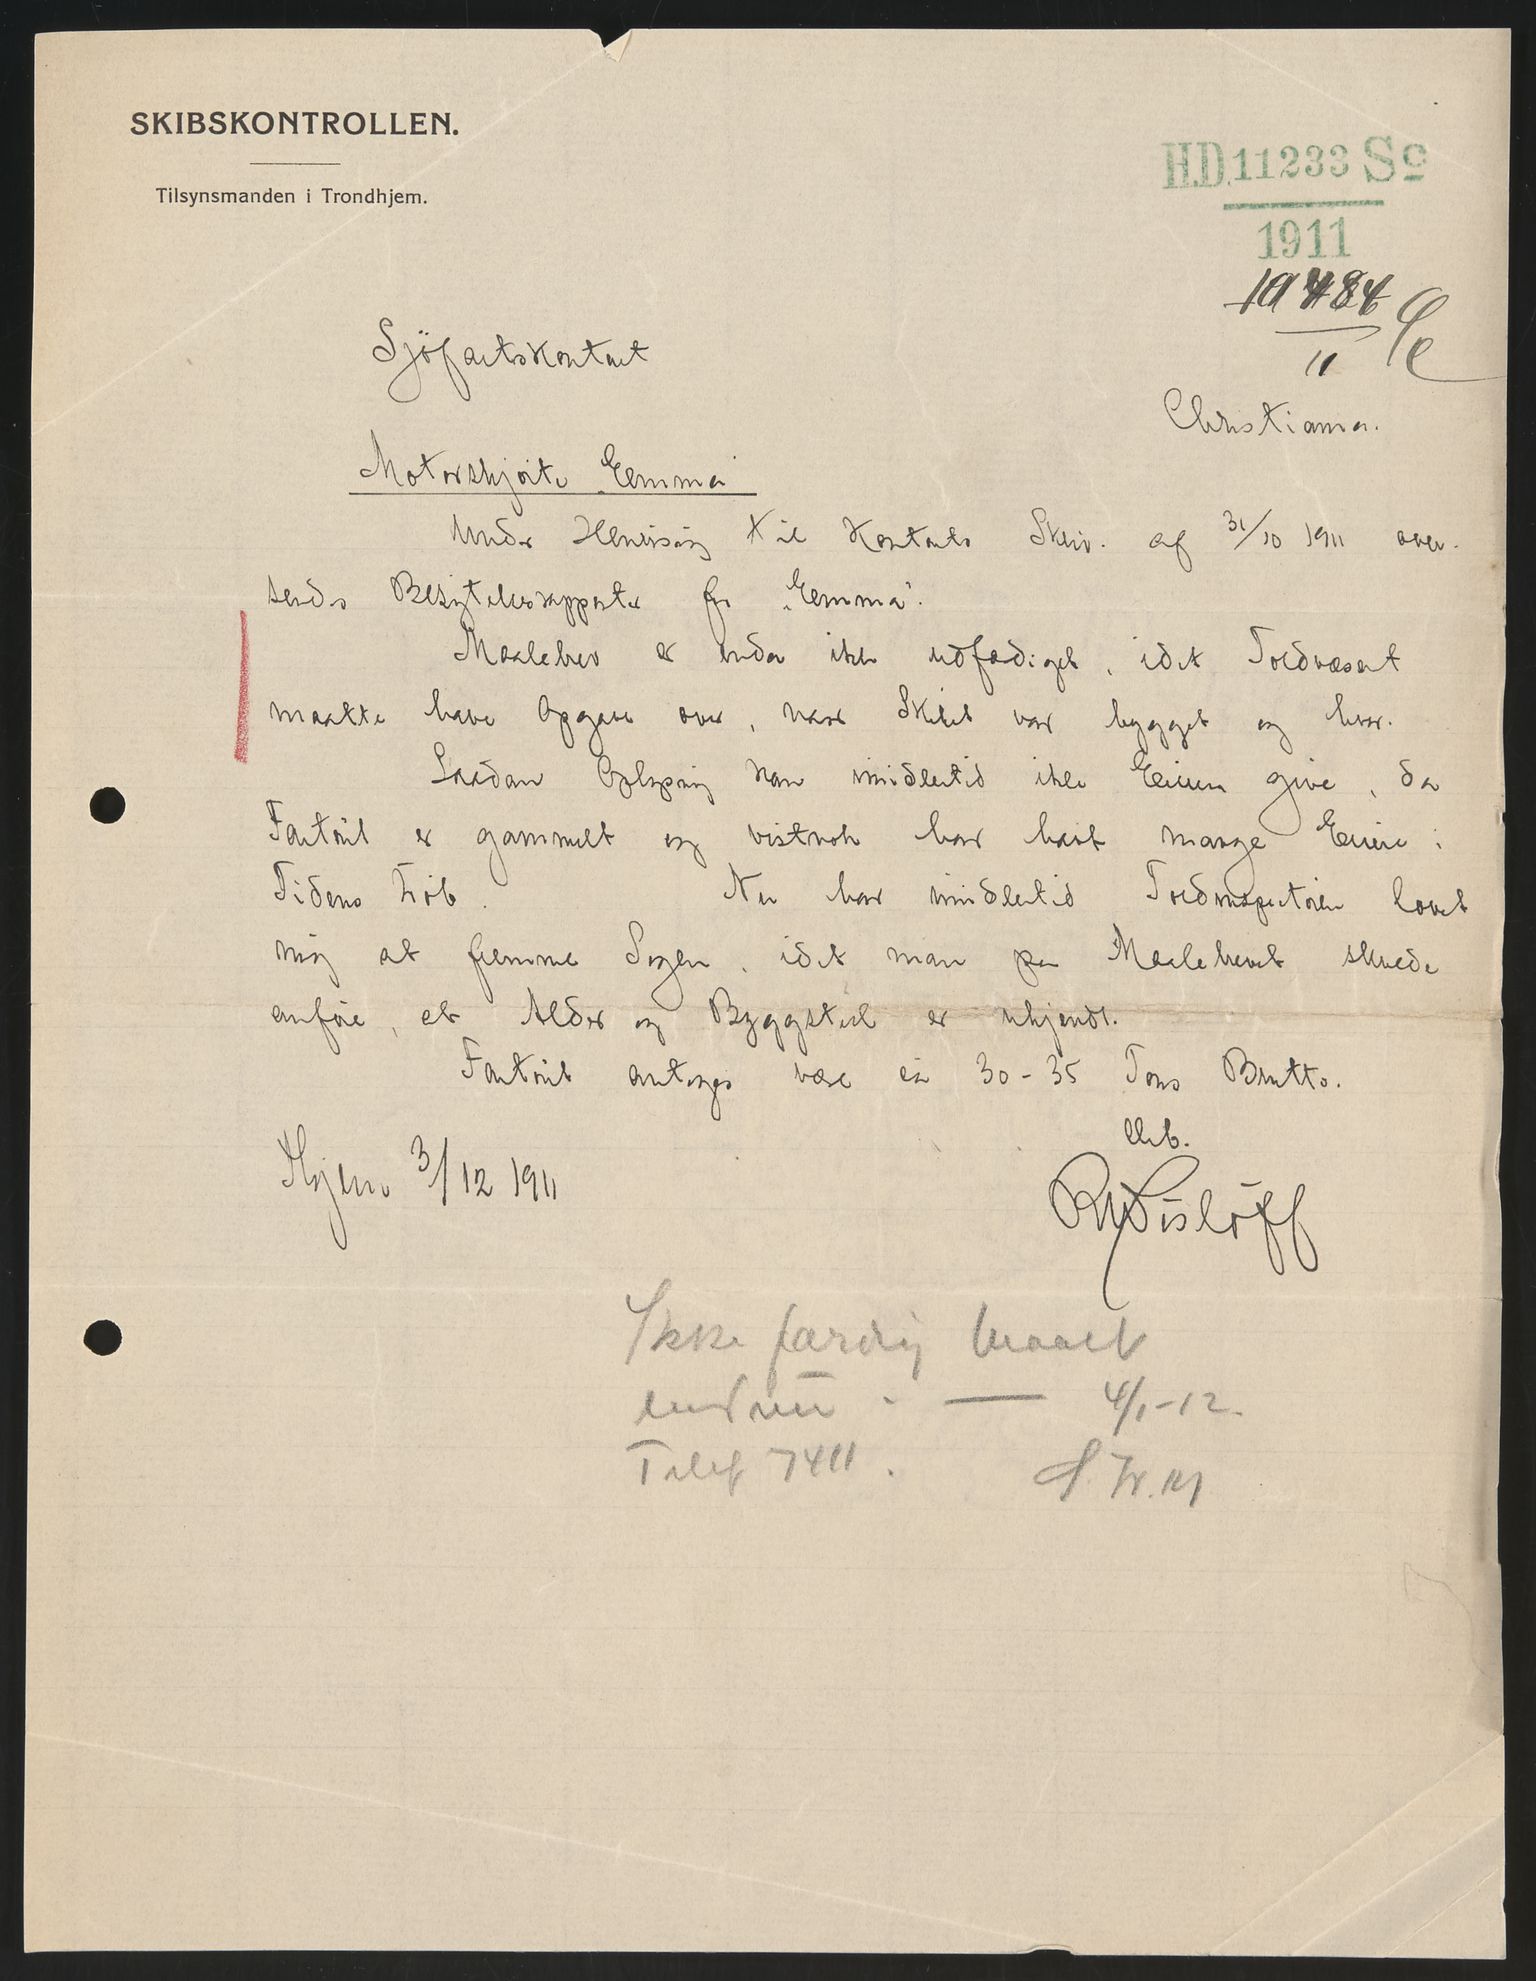 SKIBSKONTROLLEN.
Tilsynsmanden i Trondhjem.
H.D. 11233 Sc
1911
11
Sjöfartskontoret
Christiania.
Motorskjöite "Emma"
Under Henvisning til Kontorets Skriv. af 31/10 1911 over-
sendes Besigtelsesrapporter for "Emma".
Maalebrev er enda ikke udfærdiget, idet Toldvæsenet
maatte have Opgave over, naar Skibet var bygget og hvor.
Saadan Oplysning kan imidlertid ikke Eieren give, da
Fartöiet er gammelt og vistnok har havt mange Eiere i
Tidens Löb. Nu har imidlertid Toldinspektören lovet
mig at fremme Sagen, idet man paa Maalebrevet skulde
anföre, at Alder og Byggested er ukjendt.
Fartöiet antages være ca 30-35 Tons Brutto.
Thjem 3/12 1911
Ærb.
Ikke færdig maalt
endnu. — 4/1-12.
Telef 7411.